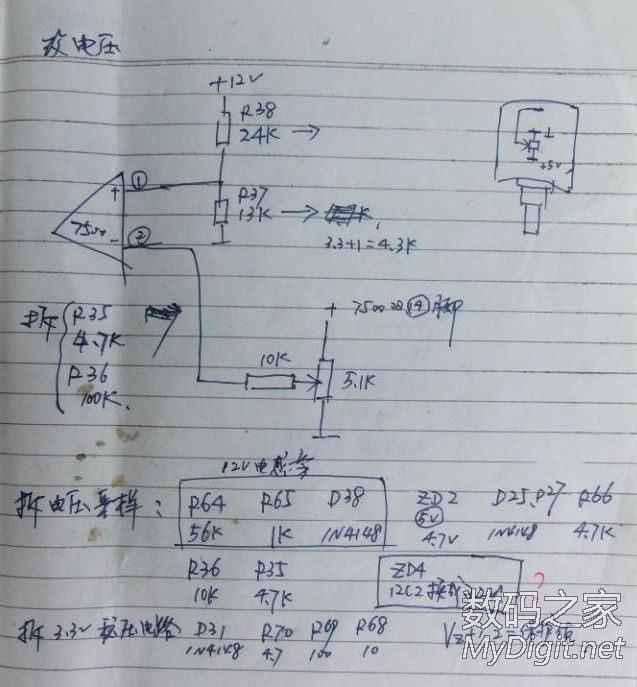 改电压
+12V
R38
24K →
①
+
7500
-
②
R37
13K →
3.3+1=4.3K
拆 R35
4.7K
R36
100K
+ 7500 ⑭脚
10K
5.1K
+5V
12V电感旁
拆电压采样: R64 R65 D38 ZD2 D25、D27 R66
56K 1K 1N4148 5V 4.7V 1N4148 4.7K
R36 R35 ZD4
10K 4.7K 12C2 ?
拆3.3V 稳压电路 D31 R70 R69 R68
1N4148 4.7 100 10
数码之家
MyDigit.net